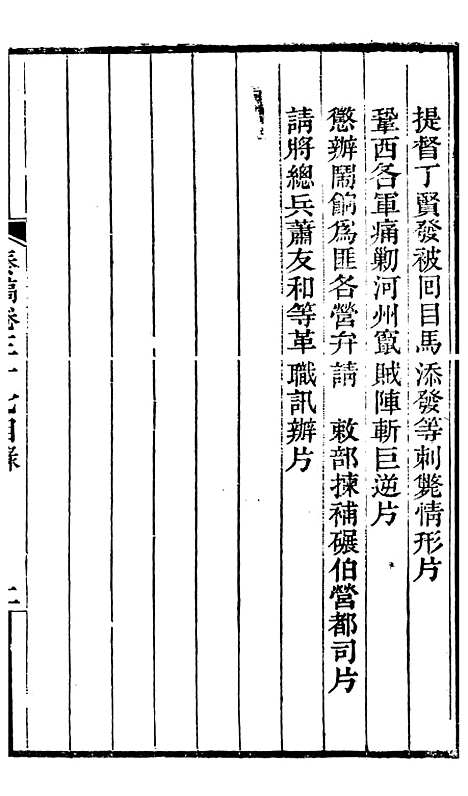 提督丁賢發被回目馬添發等刺斃情形片
鞏西各軍痛勦河州竄賊陣斬巨逆片
懲辦鬧餉爲匪各營弁請　敕部揀補碾伯營都司片
請將總兵蕭友和等革職訊辦片
奏稿卷三十七目錄　二